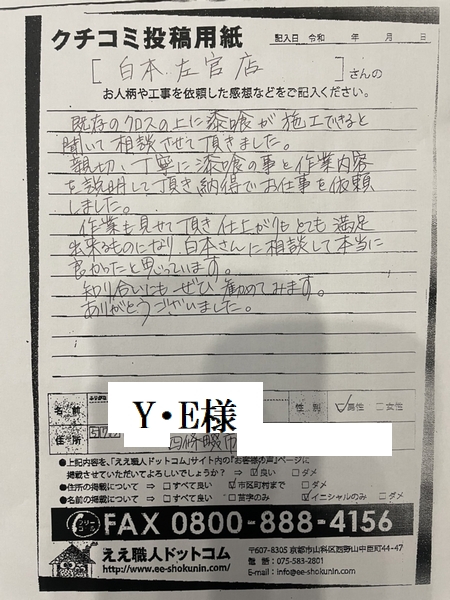 クチコミ投稿用紙
記入日 令和 年 月 日
[ 白本左官店 ] さんの
お人柄や工事を依頼した感想などをご記入ください。
既存のクロスの上に漆喰が施工できると
聞いて相談させて頂きました。
親切、丁寧に漆喰の事と作業内容
を説明して頂き納得でお仕事を依頼
しました。
作業も見せて頂き仕上がりもとても満足
出来るものになり白本さんに相談して本当に
良かったと思っています。
知り合いにもぜひ勧めてみます。
ありがとうございました。
名前
Y・E様
性別 ☑男性 □女性
住所
四條畷市
●上記内容を、「ええ職人ドットコム」サイト内の『お客様の声』ページに
掲載させていただいてよろしいでしょうか? ⇒ ☑良い □ダメ
●住所の掲載について ⇒ □すべて良い ☑市区町村まで □ダメ
●名前の掲載について ⇒ □すべて良い □苗字のみ ☑イニシャルのみ □ダメ
フリーコール FAX 0800-888-4156
ええ職人ドットコム
http://www.ee-shokunin.com/
〒607-8305 京都市山科区西野山中臣町44-47
電話:075-583-2801
E-mail:info@ee-shokunin.com